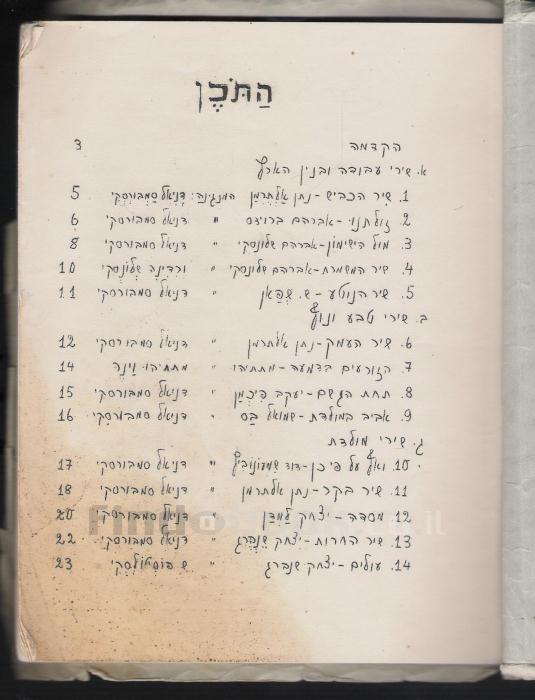 הַתֹּכֶן
הקדמה 3
א. שירי עבודה ובנין הארץ
1. שיר הכביש - נתן אַלתֶּרמַן המנגינה: דניאל סמבורסקי 5
2. אברהם ברוידס " דניאל סמבורסקי 6
3. מול הישימון - אברהם שלונסקי " דניאל סמבורסקי 8
4. שיר המשמרת - אברהם שלונסקי " ורדינה שלונסקי 10
5. שיר הנוטע - ש. שְׁפַּאן " דניאל סמבורסקי 11
ב. שירי טבע ונוף
6. שיר העמק - נתן אלתרמן " דניאל סמבורסקי 12
7. הזורעים בדמעה - מתתיהו " מתתיהו וַינֶר 14
8. תחת הגשם - יעקב פיכמַן " דניאל סמבורסקי 15
9. אביב במולדת - שמואל בַּס " דניאל סמבורסקי 16
ג. שירי מולדת
10. ואף על פי כן - דוד שמעונוביץ " דניאל סמבורסקי 17
11. שיר בקר - נתן אלתרמן " דניאל סמבורסקי 18
12. מסדה - יצחק לַמדַּן " דניאל סמבורסקי 20
13. שיר החרות - יצחק שֶׁנברג " דניאל סמבורסקי 22
14. עולים - יצחק שנברג " ש פוֹסטוֹלסקי 23